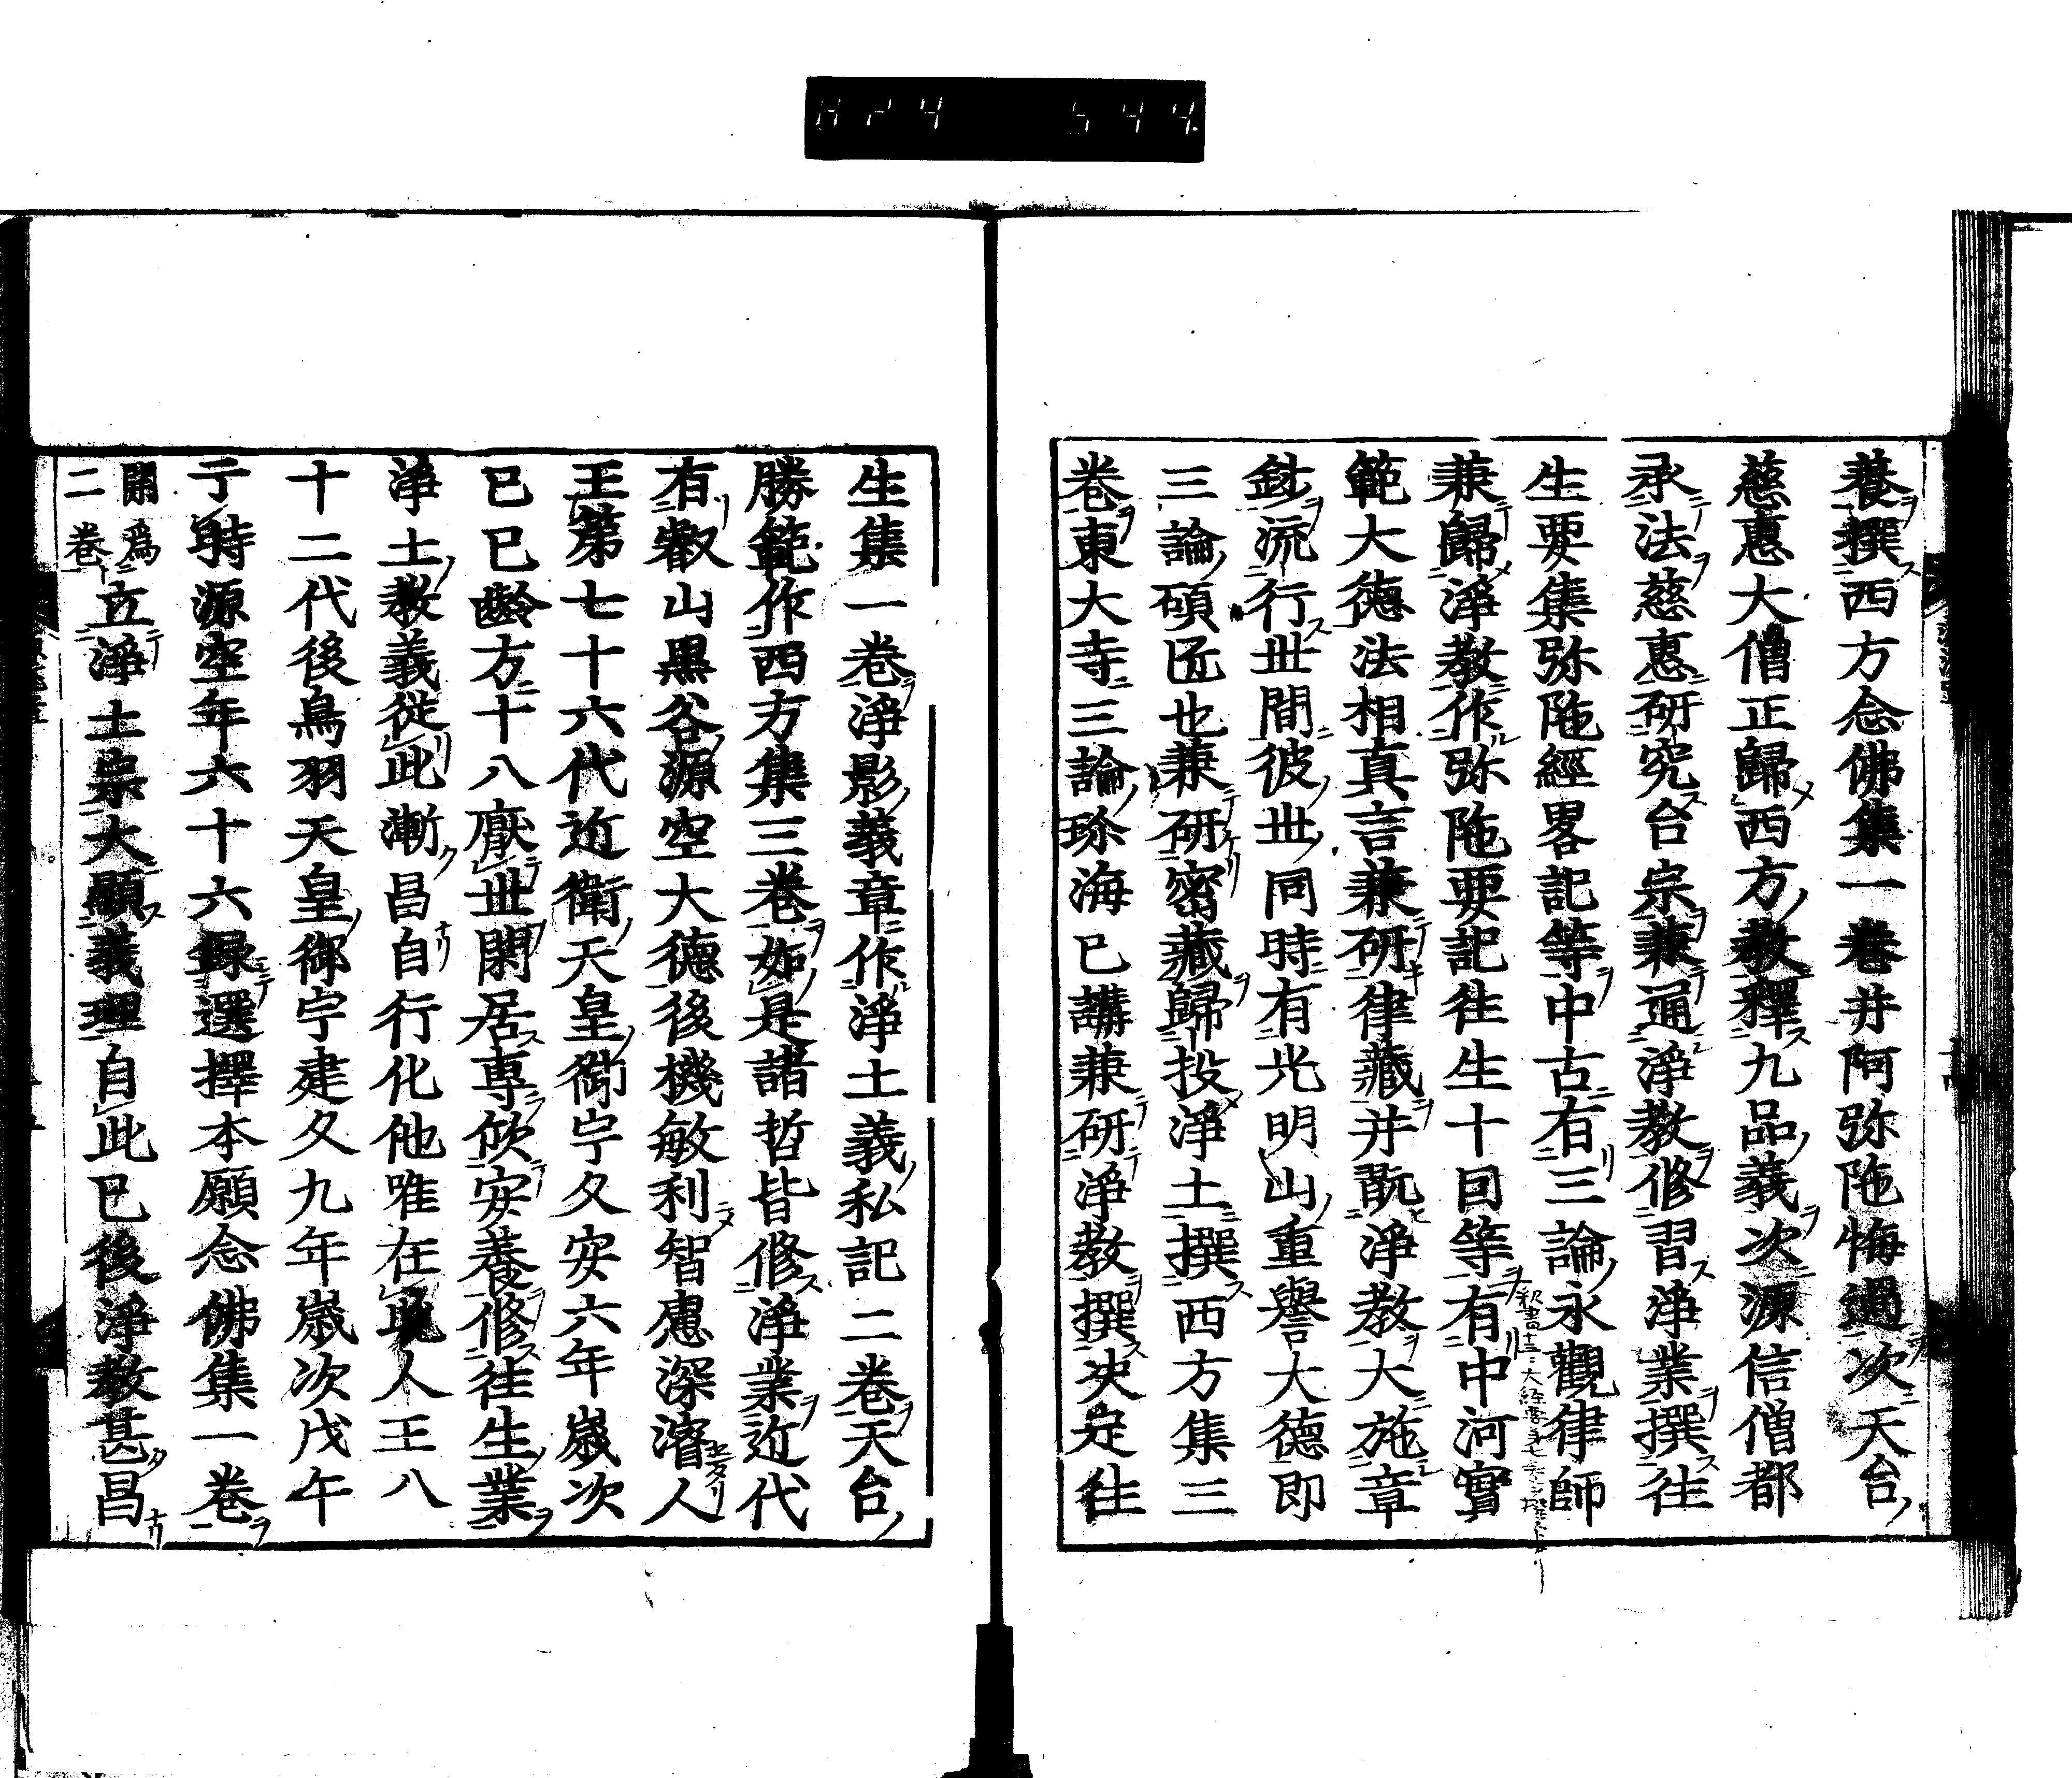 養撰西方念佛集一巻并阿弥陁悔過次天台
慈惠大僧正歸西方教釋九品義次源信僧都
承法慈惠研究台宗兼通淨教修習淨業撰往
生要集弥陁經畧記等中古有三論永觀律師
兼歸淨教作弥陁要記往生十回等有中河實
範大德法相真言兼研律藏并翫淨教大施章
鈔流行世間彼世同時有光明山重譽大德即
三論碩匠也兼研密藏歸投淨土撰西方集三
巻東大寺三論珍海已講兼研淨教撰决定往
生集一巻淨影義章作淨土義私記二巻天台
勝範作西方集三巻如是諸哲皆修淨業近代
有叡山黒谷源空大德後機敏利智慮深濬人
王第七十六代近衛天皇御宇久安六年歲次
已巳齡方十八厭世閑居専欣安養修往生業
淨土教義從此漸昌自行化他唯在此人王八
十二代後鳥羽天皇御宇建久九年歲次戊午
于時源空年六十六錄選擇本願念佛集一巻
開爲二巻立淨土宗大顯義理自此已後淨教甚昌